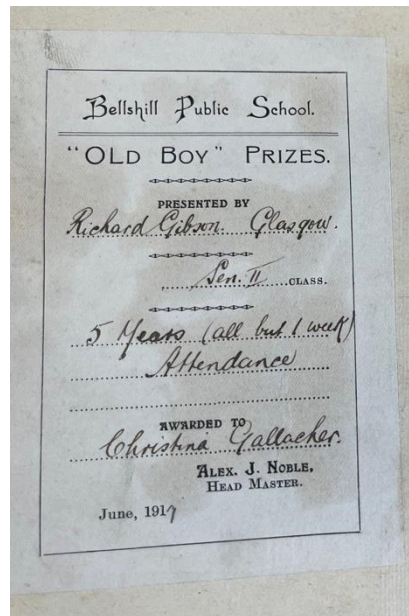 Bellshill Public School.
"OLD BOY" PRIZES.
PRESENTED BY
Richard Gibson. Glasgow.
Sen. II CLASS.
5 Years (all but 1 week)
Attendance
AWARDED TO
Christina Gallacher.
ALEX. J. NOBLE,
HEAD MASTER.
June, 1917